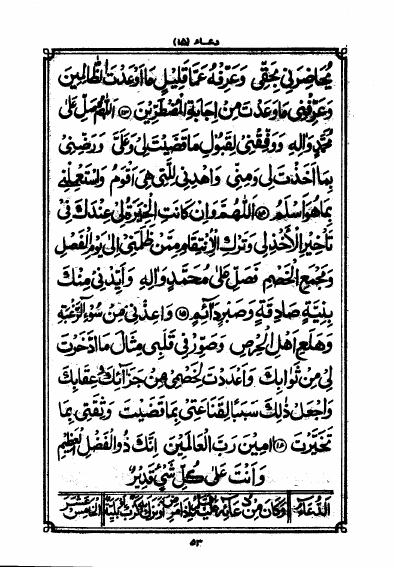 دعاء (١٥)
يُحَاضِرُنِي بِحَقِّي وَعَرِّفْهُ عَمَّا قَلِيلٍ مَا أَوْعَدْتَ الظَّالِمِينَ
وَعَرِّفْنِي مَا وَعَدْتَ مِنْ إِجَابَةِ الْمُضْطَرِّينَ اَللّٰهُمَّ صَلِّ عَلَى
مُحَمَّدٍ وَاٰلِهِ وَوَفِّقْنِي لِقَبُولِ مَا قَضَيْتَ لِي وَعَلَيَّ وَرَضِّنِي
بِمَا أَخَذْتَ لِي وَمِنِّي وَاهْدِنِي لِلَّتِي هِيَ أَقْوَمُ وَاسْتَعْمِلْنِي
بِمَا هُوَ أَسْلَمُ اَللّٰهُمَّ وَإِنْ كَانَتِ الْخِيَرَةُ لِي عِنْدَكَ فِي
تَأْخِيرِ الْأَخْذِ لِي وَتَرْكِ الْاِنْتِقَامِ مِمَّنْ ظَلَمَنِي إِلَى يَوْمِ الْفَصْلِ
وَمَجْمَعِ الْخَصْمِ فَصَلِّ عَلَى مُحَمَّدٍ وَاٰلِهِ وَأَيِّدْنِي مِنْكَ
بِنِيَّةٍ صَادِقَةٍ وَصَبْرٍ دَائِمٍ (١٥) وَأَعِذْنِي مِنْ سُوءِ الرَّغْبَةِ
وَهَلَعِ أَهْلِ الْحِرْصِ وَصَوِّرْ فِي قَلْبِي مِثَالَ مَا ادَّخَرْتَ
لِي مِنْ ثَوَابِكَ وَأَعْدَدْتَ لِخَصْمِي مِنْ جَزَائِكَ وَعِقَابِكَ
وَاجْعَلْ ذٰلِكَ سَبَبًا لِقَنَاعَتِي بِمَا قَضَيْتَ وَثِقَتِي بِمَا
تَخَيَّرْتَ (١٦) اٰمِينَ رَبَّ الْعَالَمِينَ إِنَّكَ ذُو الْفَضْلِ الْعَظِيمِ
وَأَنْتَ عَلَى كُلِّ شَيْءٍ قَدِيرٌ
الدُّعَاءُ وَكَانَ مِنْ دُعَائِهِ إِذَا مَرِضَ أَوْ نَزَلَ بِهِ كَرْبٌ أَوْ بَلِيَّةٌ الْخَامِسَ عَشَرَ
٥٣